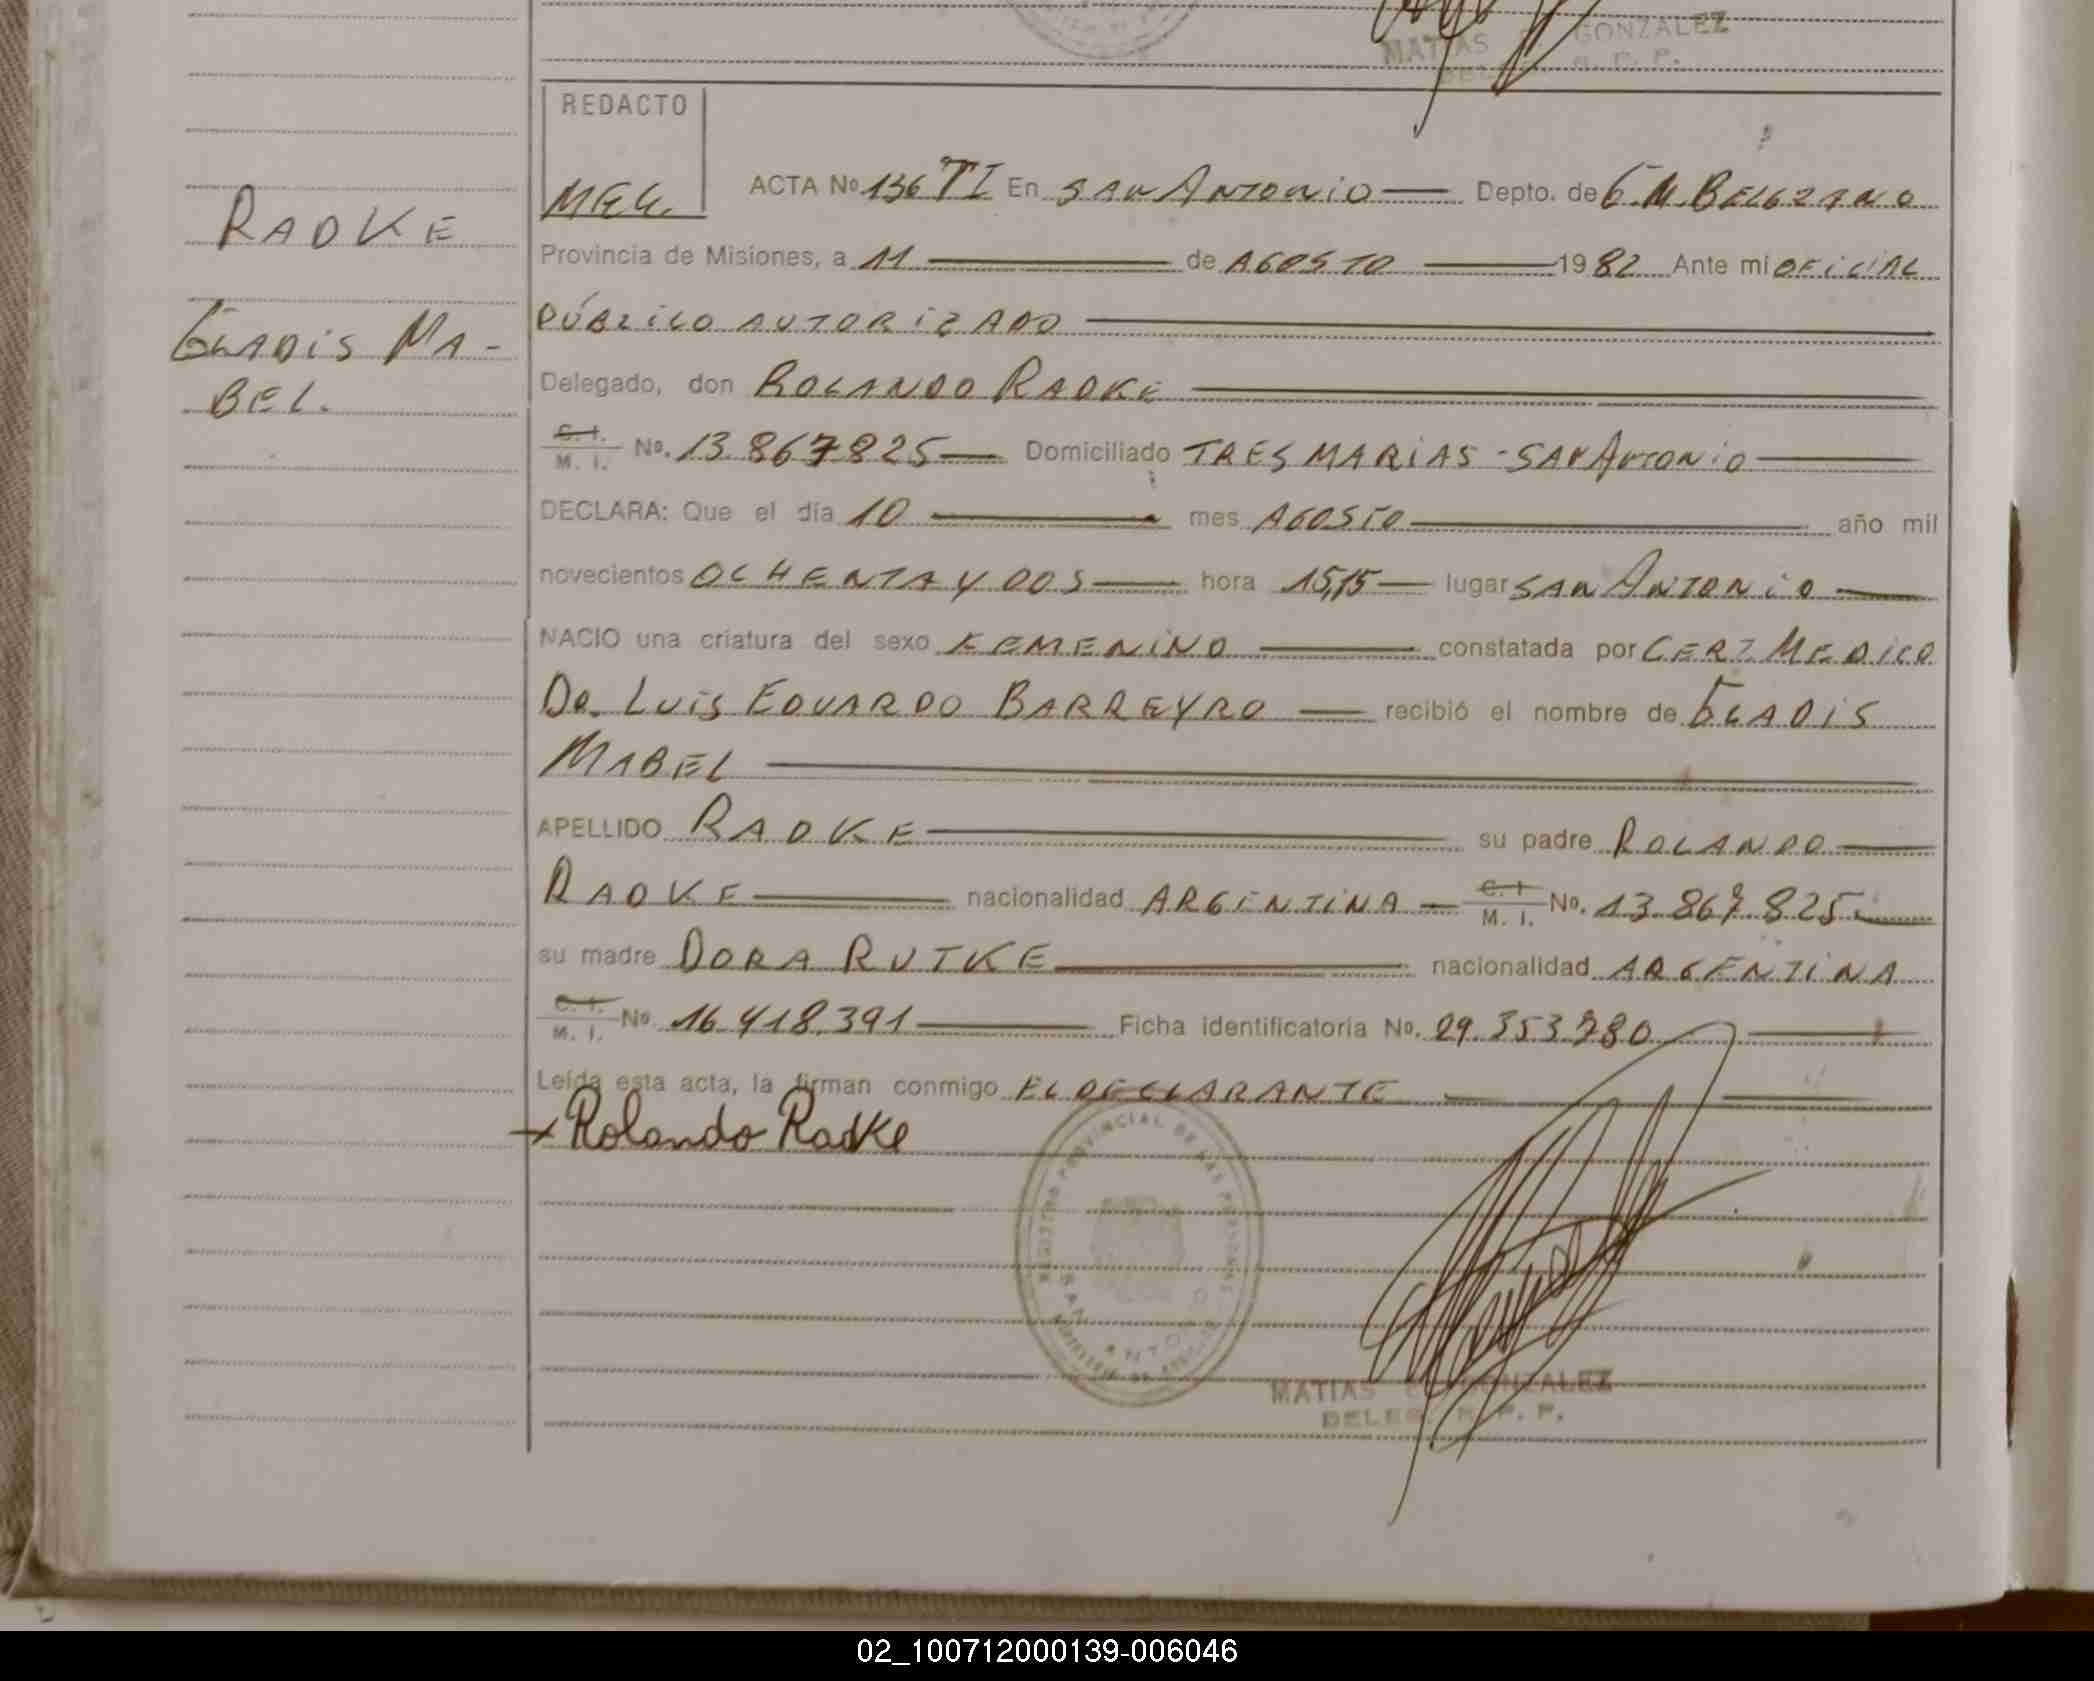 MATIAS E. GONZALEZ
DELEG. R. P. P.
REDACTO
MGG.
RADKE
GLADIS MA-
BEL.
ACTA Nº 136 TI En SAN ANTONIO Depto. de G.M. BELGRANO
Provincia de Misiones, a 11 de AGOSTO 1982 Ante mi OFICIAL
PÚBLICO AUTORIZADO
Delegado, don ROLANDO RADKE
C. I. M. I. Nº. 13.867.825 Domiciliado TRES MARIAS - SAN ANTONIO
DECLARA: Que el día 10 mes AGOSTO año mil
novecientos OCHENTA Y DOS hora 15,15 lugar SAN ANTONIO
NACIO una criatura del sexo FEMENINO constatada por CERT MEDICO
DR. LUIS EDUARDO BARREYRO recibió el nombre de GLADIS
MABEL
APELLIDO RADKE su padre ROLANDO
RADKE nacionalidad ARGENTINA C. I. M. I. Nº. 13.867.825
su madre DORA RUTKE nacionalidad ARGENTINA
C. I. M. I. Nº. 16.418.391 Ficha identificatoria No. 29.353.780
Leída esta acta, la firman conmigo EL DECLARANTE
Rolando Radke
REGISTRO PROVINCIAL DE LAS PERSONAS
SAN ANTONIO
MATIAS E. GONZALEZ
DELEG. R. P. P.
02_100712000139-006046